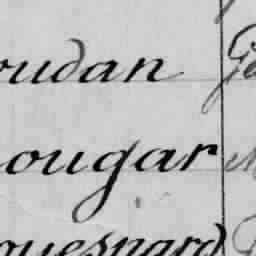 oudan Ge
ougar
ouesnard